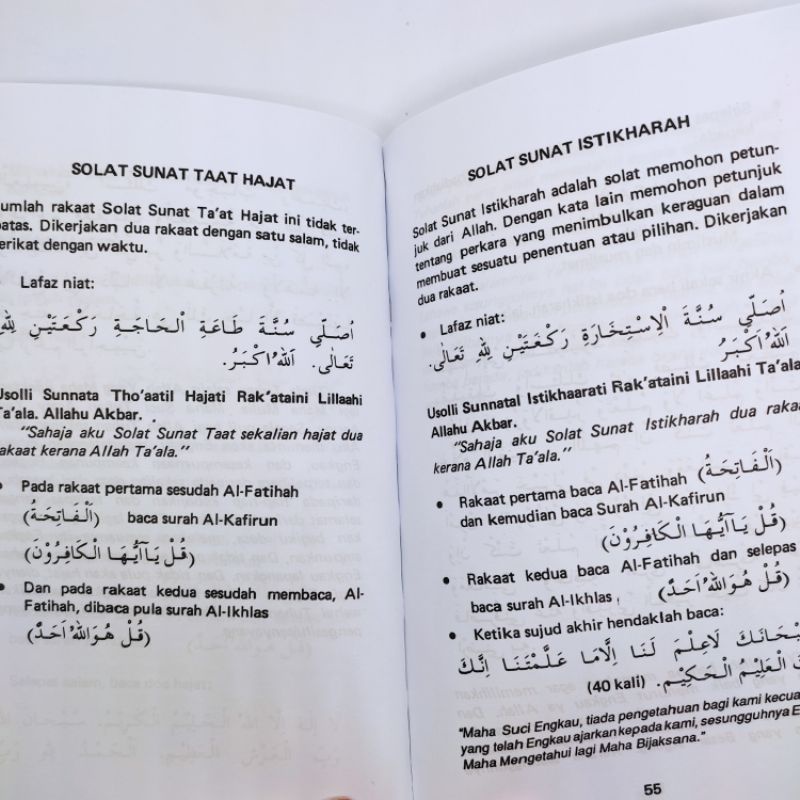 SOLAT SUNAT TAAT HAJAT
umlah rakaat Solat Sunat Ta'at Hajat ini tidak ter-
patas. Dikerjakan dua rakaat dengan satu salam, tidak
erikat dengan waktu.
Lafaz niat:
اُصَلِّي سُنَّةَ طَاعَةِ الْحَاجَةِ رَكْعَتَيْنِ لِلّٰهِ
تَعَالٰى. اَللّٰهُ اَكْبَرُ.
Usolli Sunnata Tho'aatil Hajati Rak'ataini Lillaahi
Ta'ala. Allahu Akbar.
"Sahaja aku Solat Sunat Taat sekalian hajat dua
rakaat kerana Allah Ta'ala."
• Pada rakaat pertama sesudah Al-Fatihah
(اَلْفَاتِحَةُ) baca surah Al-Kafirun
(قُلْ يَاۤاَيُّهَا الْكَافِرُوْنَ)
• Dan pada rakaat kedua sesudah membaca, Al-
Fatihah, dibaca pula surah Al-Ikhlas
(قُلْ هُوَ اللّٰهُ اَحَدٌ)
SOLAT SUNAT ISTIKHARAH
Solat Sunat Istikharah adalah solat memohon petun-
juk dari Allah. Dengan kata lain memohon petunjuk
tentang perkara yang menimbulkan keraguan dalam
membuat sesuatu penentuan atau pilihan. Dikerjakan
dua rakaat.
• Lafaz niat:
اُصَلِّي سُنَّةَ الْاِسْتِخَارَةِ رَكْعَتَيْنِ لِلّٰهِ تَعَالٰى.
اَللّٰهُ اَكْبَرُ
Usolli Sunnatal Istikhaarati Rak'ataini Lillaahi Ta'ala
Allahu Akbar.
"Sahaja aku Solat Sunat Istikharah dua rakaa
kerana Allah Ta'ala."
• Rakaat pertama baca Al-Fatihah (اَلْفَاتِحَةُ)
dan kemudian baca Surah Al-Kafirun
(قُلْ يَاۤاَيُّهَا الْكَافِرُوْنَ)
• Rakaat kedua baca Al-Fatihah dan selepas
baca surah Al-Ikhlas (قُلْ هُوَ اللّٰهُ اَحَدٌ)
• Ketika sujud akhir hendaklah baca:
بْحَانَكَ لَاعِلْمَ لَنَا اِلَّامَا عَلَّمْتَنَا اِنَّكَ
الْعَلِيْمُ الْحَكِيْمُ. (40 kali)
"Maha Suci Engkau, tiada pengetahuan bagi kami kecua
yang telah Engkau ajarkan kepada kami, sesungguhnya E
Maha Mengetahui lagi Maha Bijaksana."
55